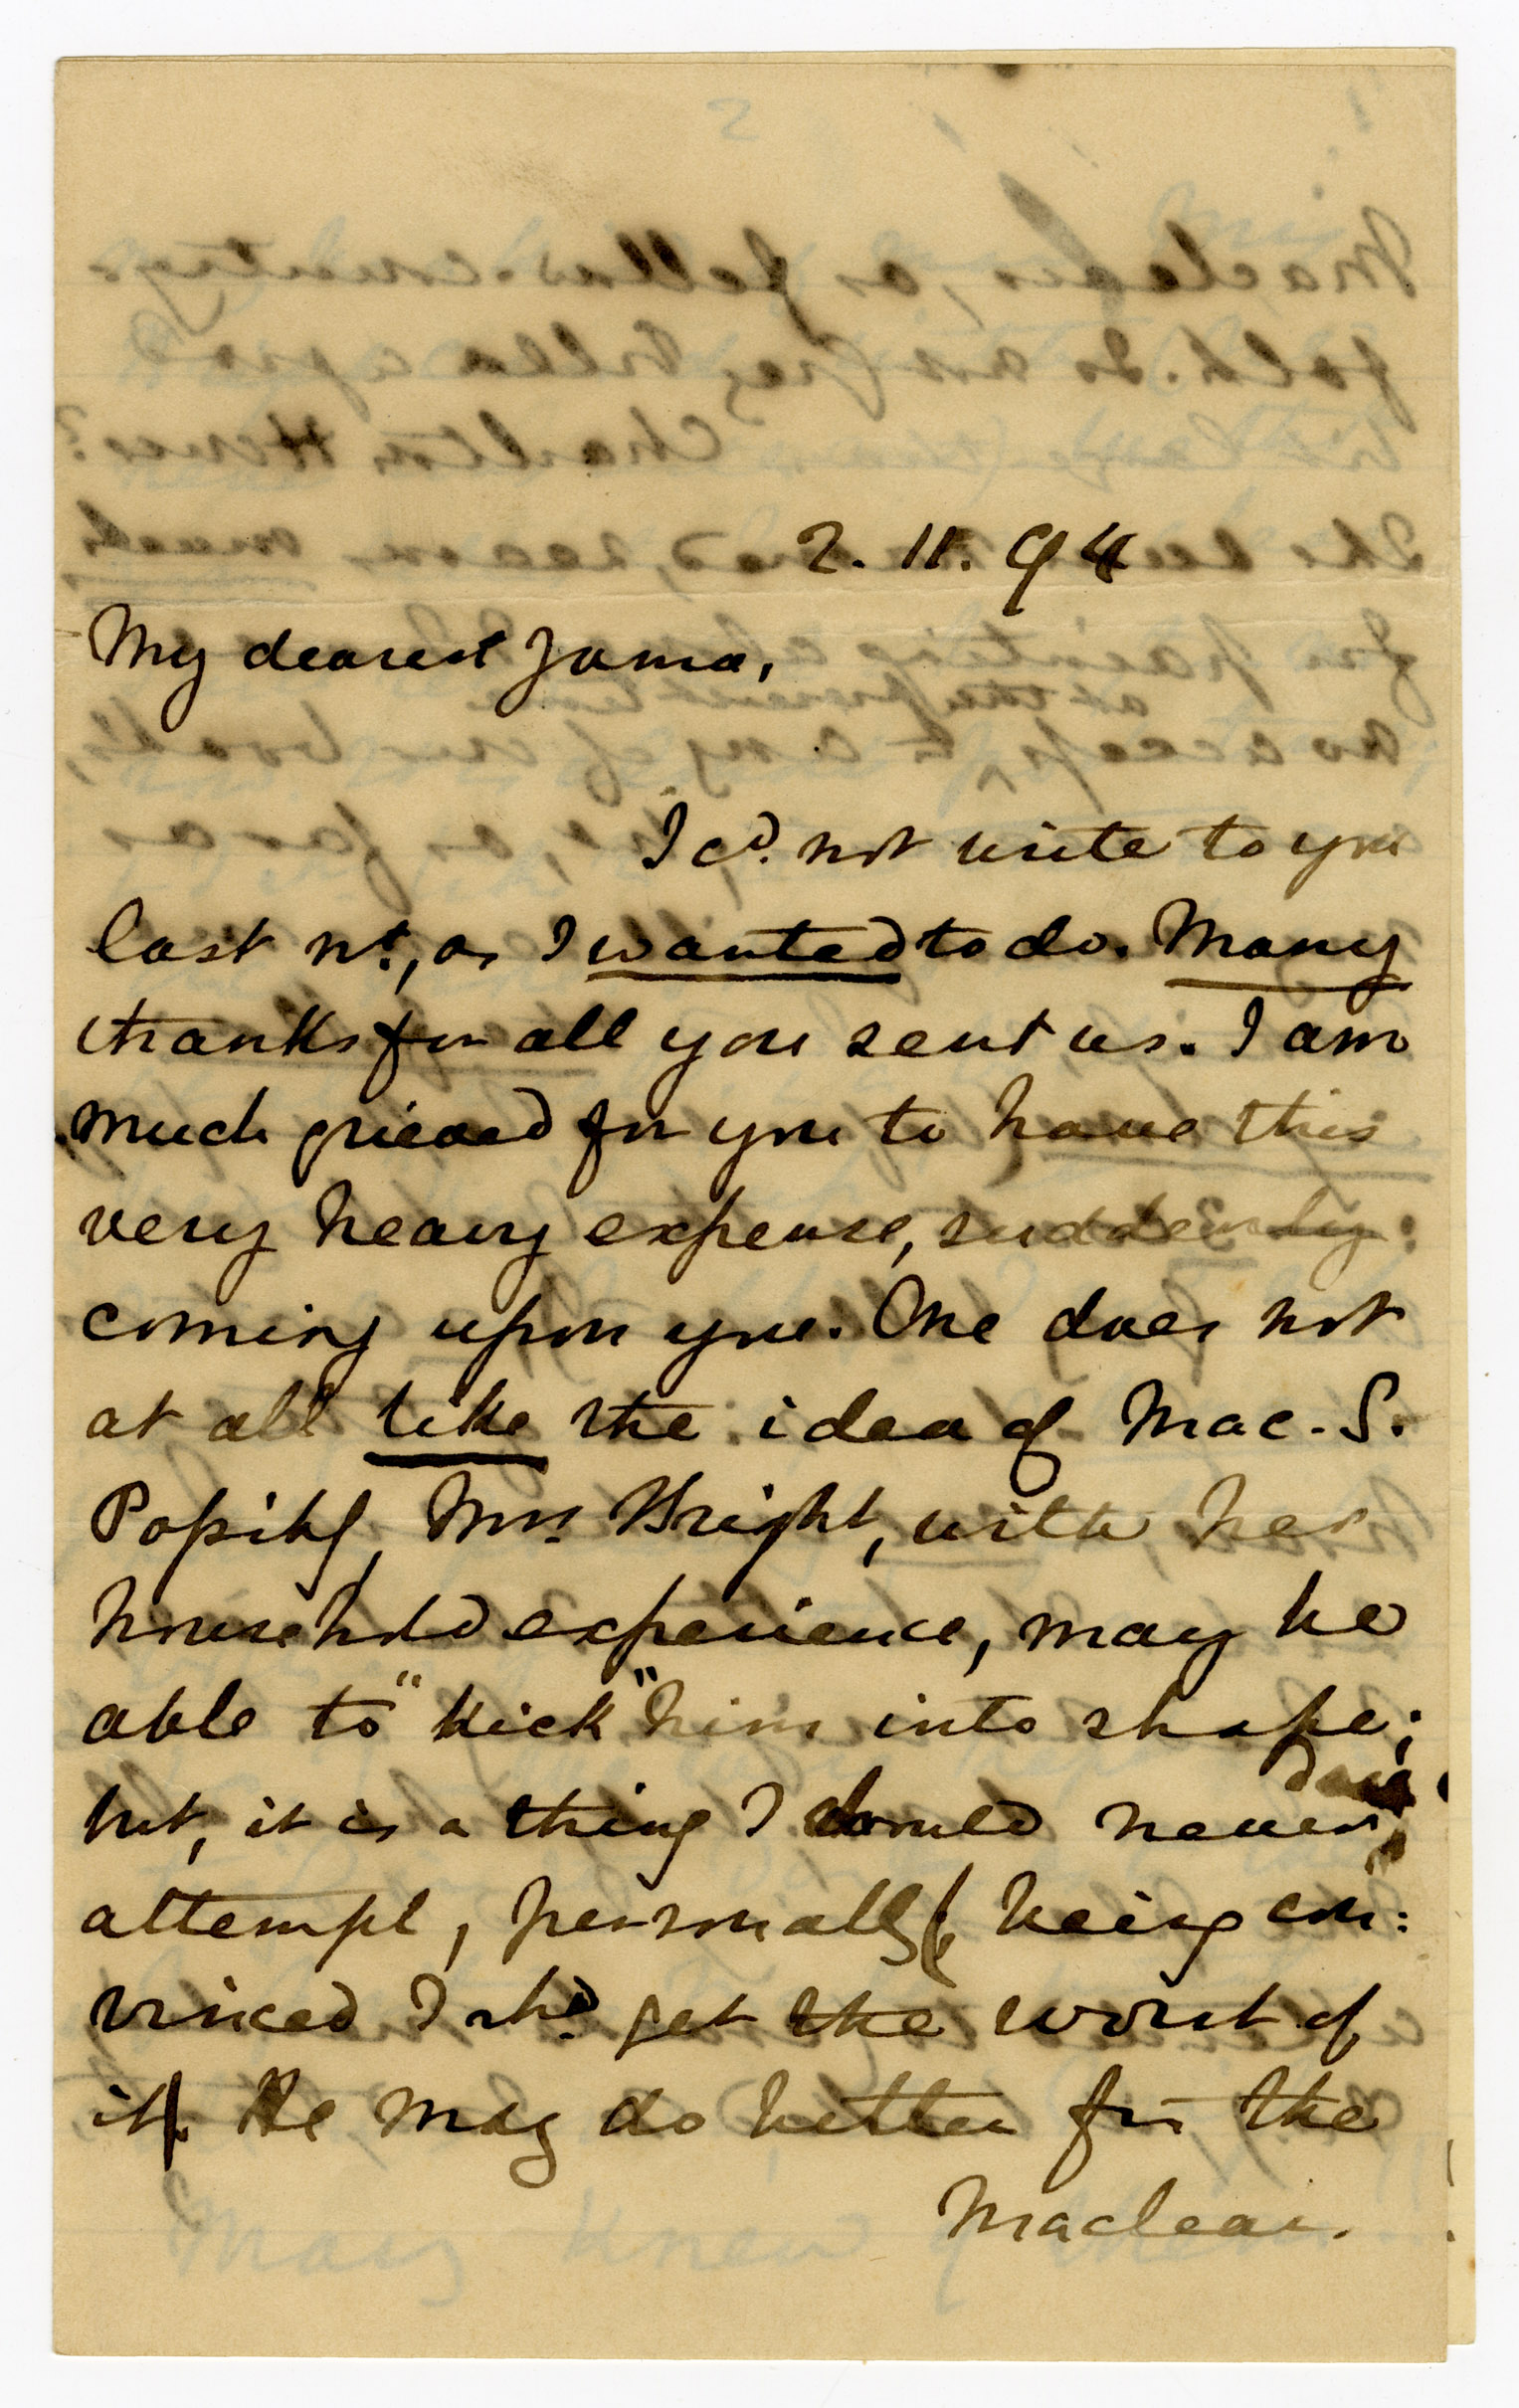 2. 11. 94
My dearest Jama,
I cd. not write to you
last nt., as I wanted to do. Many
thanks for all you sent us. I am
much grieved for you to have this
very heavy expense, suddenly
coming upon you. One does not
at all like the idea of Mac. S.
Mrs. Wright, with her
household experience, may be
able to "kick" him into shape;
but, it is a thing I should never
attempt, personally (being con:
vinced I shd. get the worst of
it). He may do better for the
Macleai.